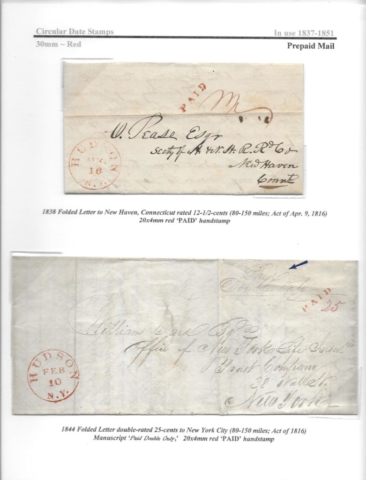 Circular Date Stamps
In use 1837-1851
30mm ~ Red
Prepaid Mail
HUDSON
18
N.Y.
PAID
O. Pease Esqr
Secty of H. & N. H. R. Rd Co
New Haven
Connt
1838 Folded Letter to New Haven, Connecticut rated 12-1/2-cents (80-150 miles; Act of Apr. 9, 1816)
20x4mm red 'PAID' handstamp
HUDSON
FEB
10
N.Y.
PAID
25
William
Office of New York Life
Trust Company
Wall St
New York
1844 Folded Letter double-rated 25-cents to New York City (80-150 miles; Act of 1816)
Manuscript 'Paid Double Only,' 20x4mm red 'PAID' handstamp